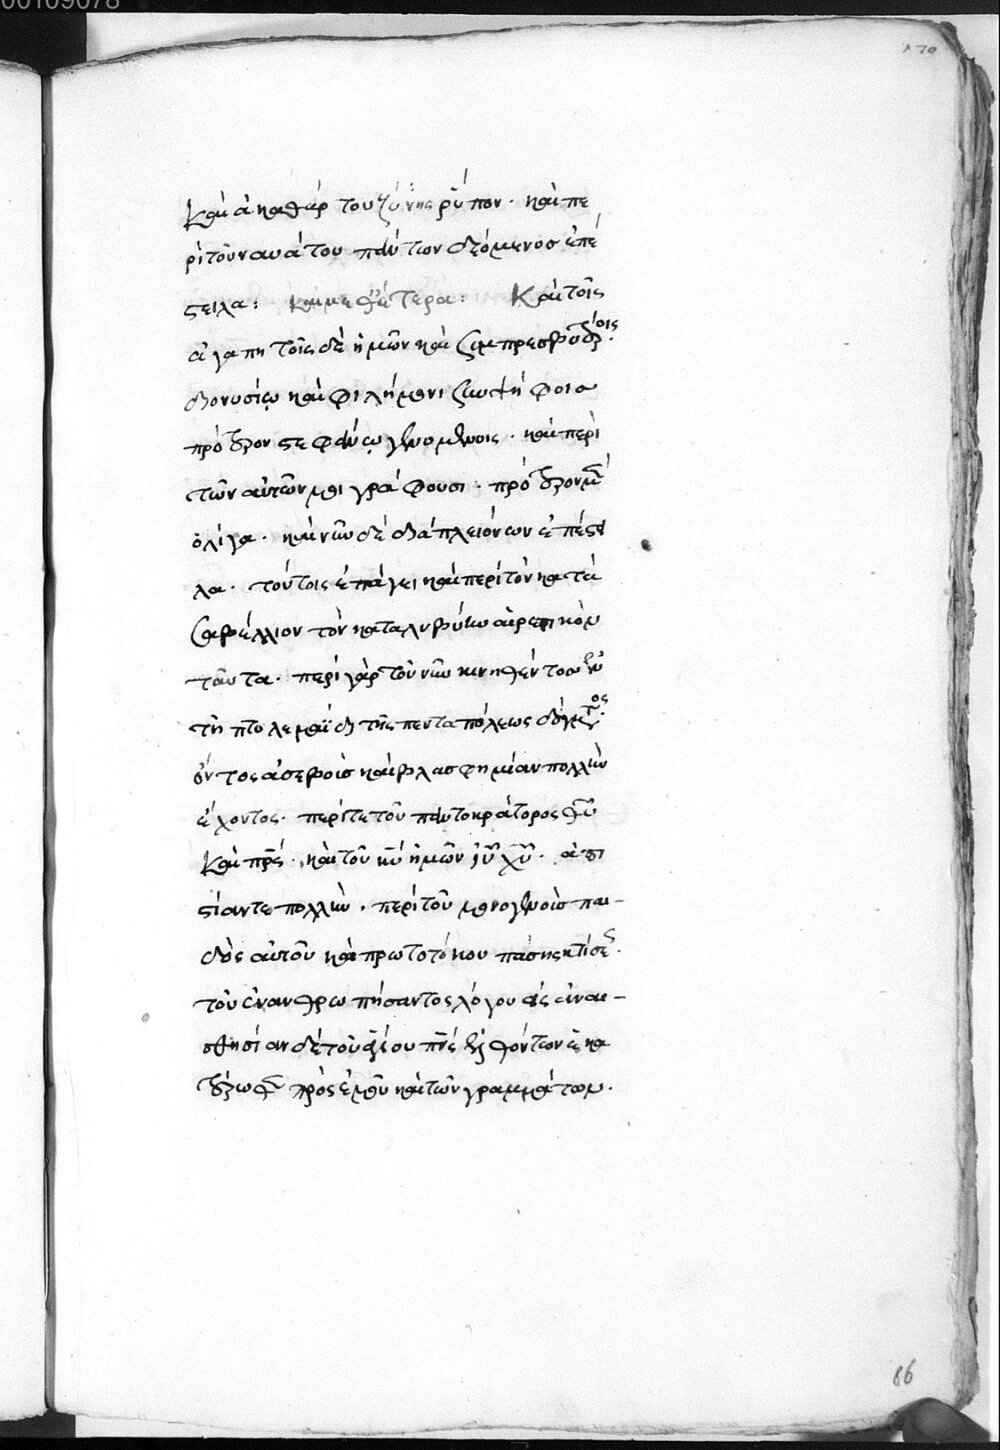 00109078
καὶ ἀκαθάρτου ζύμης ῥύπον. καὶ πε
ρὶ τούτων αὐτοῦ πάντων δεόμενος ἐπέ
στειλα: Καὶ μεθ' ἕτερα: Καὶ τοῖς
ἀγαπητοῖς δὲ ἡμῶν καὶ συμπρεσβυτέροις
διονυσίῳ καὶ φιλήμονι συμψήφοις
πρότερον στεφάνῳ γενομένοις. καὶ περὶ
τῶν αὐτῶν μοι γράφουσι. πρότερον μ(ὲν)
ὀλίγα. καὶ νῦν δὲ διὰ πλειόνων ἐπέστει
λα. τούτοις ἐπάγει καὶ περὶ τὸν κατὰ
σαβέλλιον τὸν καταλυβύων αἱρετικὸν
ταῦτα. περὶ γὰρ τοῦ νῦν κινηθέντος ἐν
τῇ πτολεμαΐδι τῆς πενταπόλεως δόγματος
ὄντος ἀσεβοῖς καὶ βλασφημίαν πολλὴν
ἔχοντος. περί τε τοῦ παντοκράτορος θ̅υ̅
καὶ π̅ρ̅ς̅. καὶ τοῦ κ̅υ̅ ἡμῶν ι̅υ̅ χ̅υ̅. ἀπι
στίαν τε πολλὴν. περὶ τοῦ μονογενοῖς παι-
δὸς αὐτοῦ καὶ πρωτοτόκου πάσης κτίσε(ως).
τοῦ ἐνανθρωπήσαντος λόγου εἰς ἀναι-
σθησίαν δὲ τοῦ ἁγίου π̅ν̅ς̅ ἐλθόντων ἑκα
τέρωθ(εν) πρὸς ἐμοῦ καὶ τῶν γραμμάτων.
86